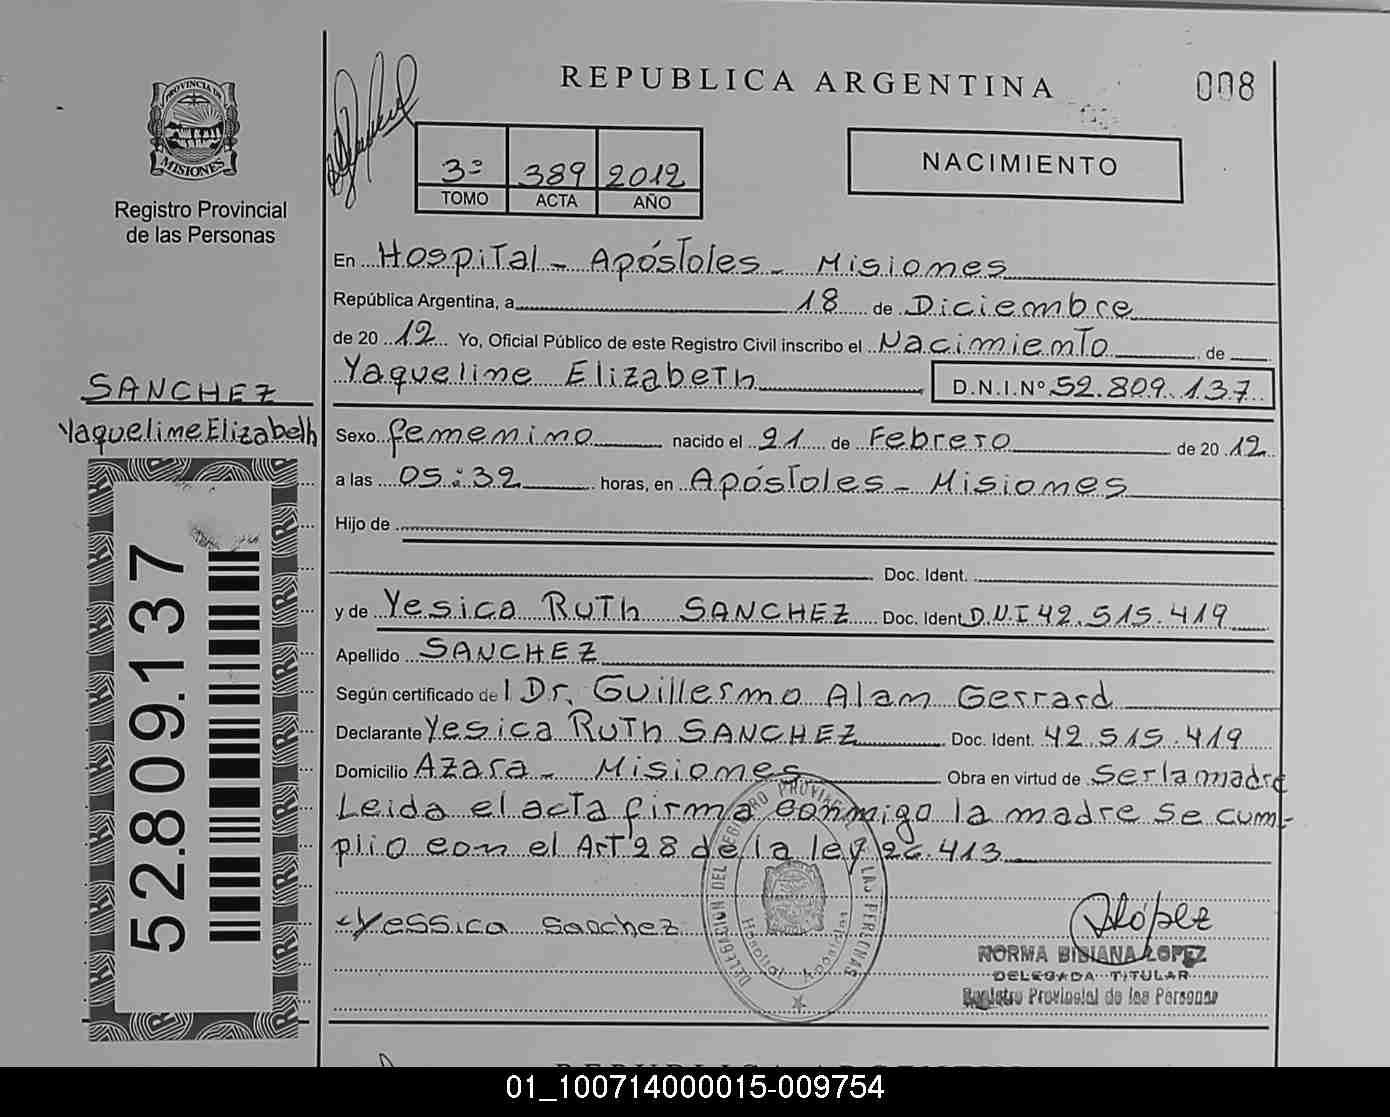 REPUBLICA ARGENTINA
008
PROVINCIA DE
MISIONES
Registro Provincial
de las Personas
3º 389 2012
TOMO ACTA AÑO
NACIMIENTO
En Hospital - Apóstoles - Misiones
República Argentina, a 18 de Diciembre
de 20 12 Yo, Oficial Público de este Registro Civil inscribo el Nacimiento de
Yaqueline Elizabeth D.N.I.Nº 52.809.137
SANCHEZ
Yaqueline Elizabeth
Sexo femenino nacido el 21 de Febrero de 20 12
a las 05:32 horas, en Apóstoles - Misiones
Hijo de
Doc. Ident.
y de Yesica Ruth SANCHEZ Doc. Ident D.N.I 42.515.419
Apellido SANCHEZ
Según certificado del Dr. Guillermo Alan Gerrard
Declarante Yesica Ruth SANCHEZ Doc. Ident. 42.515.419
Domicilio Azara - Misiones Obra en virtud de Ser la madre
Leida el acta firma conmigo la madre se cum-
plio con el Art 28 de la ley 26.413
52.809.137
Yessica Sanchez
DELEGACION DEL REGISTRO PROVINCIAL DE LAS PERSONAS
Hospital Apóstoles
López
NORMA BIBIANA LOPEZ
DELEGADA TITULAR
Registro Provincial de las Personas
REPUBLICA ARGENTINA
01_100714000015-009754